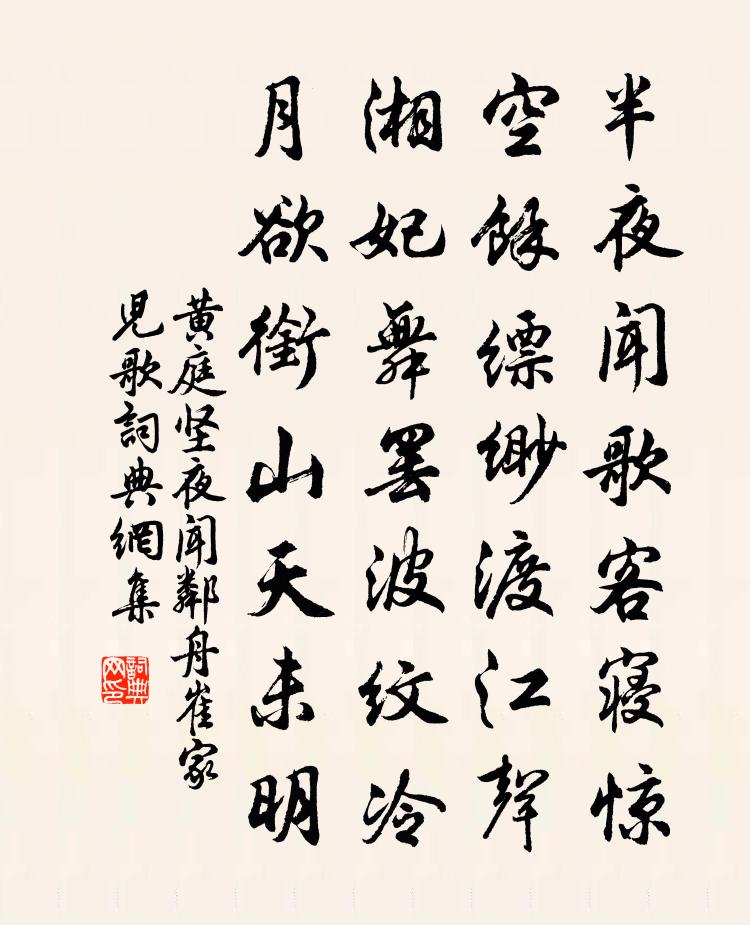 半夜闻歌客寝惊
空馀缥缈渡江聲
湘妃舞罢波纹冷
月欲銜山天未明
黄庭坚夜闻鄰舟崔家
児歌詞典網集
詞典网印